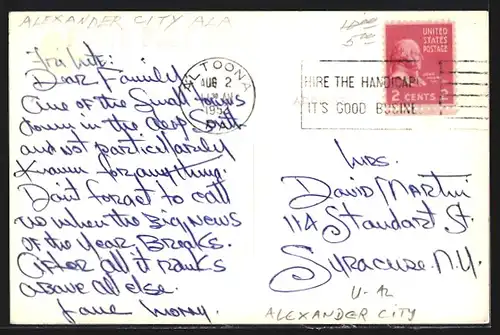 ALEXANDER CITY ALA
5.00
Fri Nite:
Dear Family
One of the Small towns
down in the deep South
and not particularly
Known for anything.
Don't forget to call
us when the Big News
of the Year Breaks.
After all it ranks
above all else.
ALTOONA
AUG 2
1954
PA
HIRE THE HANDICAP
IT'S GOOD BUSINE
UNITED STATES
POSTAGE
2 CENTS 2
Mrs.
David Martin
114 Standart St.
Syracuse N.Y.
U-AL
ALEXANDER CITY